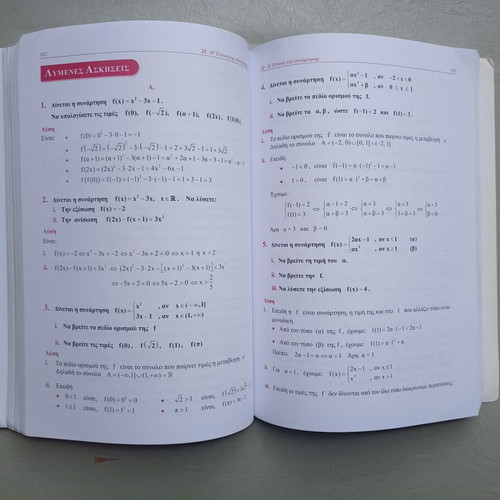 182
21· Η Έννοια της συνάρτησης
ΛΥΜΕΝΕΣ ΑΣΚΗΣΕΙΣ
Α.
1. Δίνεται η συνάρτηση f(x) = x² - 3x - 1.
Να υπολογίσετε τις τιμές f(0), f(-√2), f(α+1), f(2x), f(f(0))
Λύση
Είναι: • f(0) = 0² - 3·0 - 1 = -1
• f(-√2) = (-√2)² - 3(-√2) - 1 = 2 + 3√2 - 1 = 1 + 3√2
• f(α+1) = (α+1)² - 3(α+1) - 1 = α² + 2α + 1 - 3α - 3 - 1 = α² - α - 3
• f(2x) = (2x)² - 3·2x - 1 = 4x² - 6x - 1
• f(f(0)) = f(-1) = (-1)² - 3(-1) - 1 = 1 + 3 - 1 = 3
2. Δίνεται η συνάρτηση f(x) = x² - 3x, x∈ℝ. Να λύσετε:
i. Την εξίσωση f(x) = -2
ii. Την ανίσωση f(2x) - f(x+1) < 3x²
Λύση
Είναι:
i. f(x) = -2 ⇔ x² - 3x = -2 ⇔ x² - 3x + 2 = 0 ⇔ x = 1 ή x = 2
ii. f(2x) - f(x+1) < 3x² ⇔ (2x)² - 3·2x - [(x+1)² - 3(x+1)] < 3x²
⇔ -5x + 2 < 0 ⇔ 5x - 2 > 0 ⇔ x > 2/5
3. Δίνεται η συνάρτηση f(x) = { x² , αν x∈(-∞,1]
3x - 1 , αν x∈(1,+∞)
i. Να βρείτε το πεδίο ορισμού της f
ii. Να βρείτε τις τιμές f(0), f(√2), f(1), f(π)
Λύση
i. Το πεδίο ορισμού της f είναι το σύνολο που παίρνει τιμές η μεταβλητή x.
Δηλαδή το σύνολο A = (-∞,1]∪(1,+∞) = ℝ
ii. Επειδή
• 0<1 είναι, f(0) = 0² = 0 • √2 > 1 είναι, f(√2) = 3√2 - 1
• 1≤1 είναι, f(1) = 1² = 1 • π > 1 είναι, f(π) = 3π - 1
Η Έννοια της συνάρτησης
183
4. Δίνεται η συνάρτηση f(x) = { αx² - 1 , αν -2 < x < 0
αx³ + β , αν 0 ≤ x ≤ 1
i. Να βρείτε το πεδίο ορισμού της f.
ii. Να βρείτε τα α, β, ώστε f(-1) = 2 και f(1) = 3.
Λύση
i. Το πεδίο ορισμού της f είναι το σύνολο που παίρνει τιμές η μεταβλητή x.
Δηλαδή το σύνολο A = (-2, 0)∪[0, 1] = (-2, 1]
ii. Επειδή:
• -1 < 0, είναι f(-1) = α·(-1)² - 1 = α - 1
• 1 > 0, είναι f(1) = α·1³ + β = α + β
Έχουμε:
{ f(-1) = 2 ⇔ { α - 1 = 2 ⇔ { α = 3 ⇔ { α = 3 ⇔ { α = 3
f(1) = 3 α + β = 3 α + β = 3 3 + β = 3 β = 0
Άρα α = 3 και β = 0.
5. Δίνεται η συνάρτηση f(x) = { 2αx - 1 , αν x ≤ 1 (α)
αx² , αν x ≥ 1 (β)
i. Να βρείτε τη τιμή του α.
ii. Να βρείτε την f.
iii. Να λύσετε την εξίσωση f(x) = 4.
Λύση
i. Επειδή η f είναι συνάρτηση, η τιμή της και στο 1 που αλλάζει τύπο είναι
μοναδική
• Από τον τύπο (α) της f, έχουμε: f(1) = 2α·1 - 1 = 2α - 1
• Από τον τύπο (β) της f, έχουμε: f(1) = α·1² = α
Πρέπει: 2α - 1 = α ⇔ α = 1 Άρα α = 1
ii. Για α = 1, έχουμε: f(x) = { 2x - 1 , αν x ≤ 1
x² , αν x > 1
iii. Επειδή οι τιμές της f δεν δίνονται από τον ίδιο τύπο διακρίνουμε περιπτώσεις.